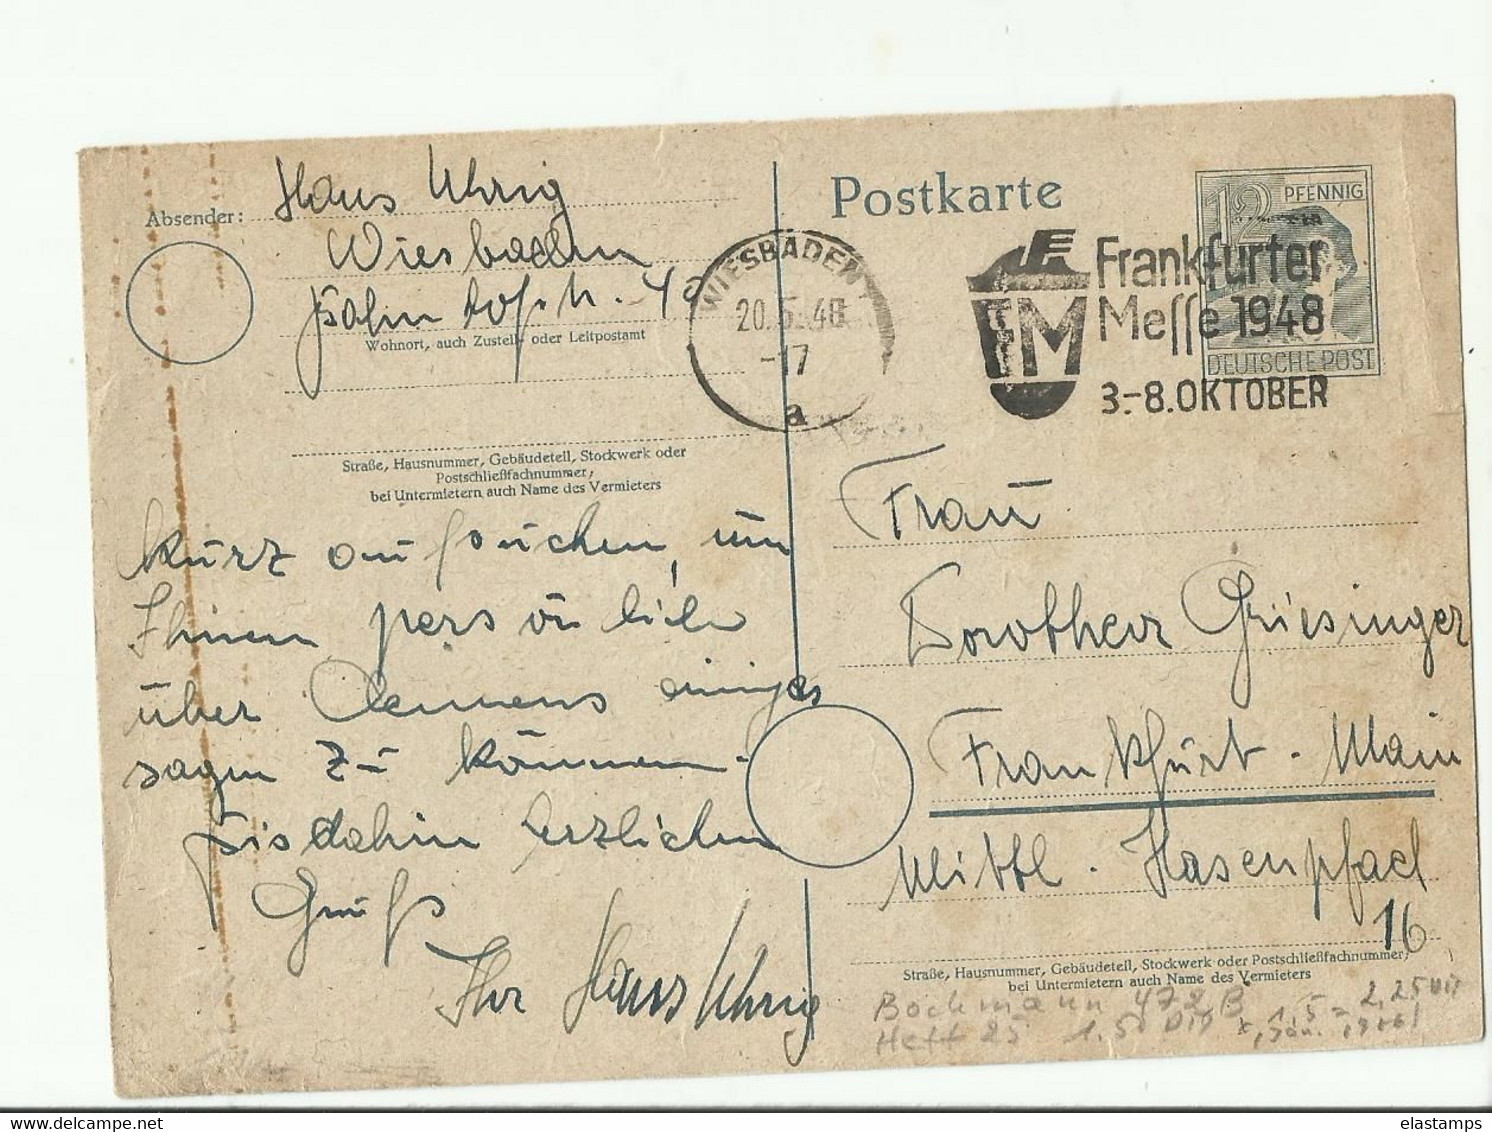 Absender: Hans Uhrig
Wiesbaden
Bahnhofstr. 42
Wohnort, auch Zustell- oder Leitpostamt
Straße, Hausnummer, Gebäudeteil, Stockwerk oder
Postschließfachnummer,
bei Untermietern auch Name des Vermieters
kurz aufsuchen, um
Ihnen persönlich
über Clemens einiges
sagen zu können.
Bis dahin herzlichen
Gruß
Ihr Hans Uhrig
Postkarte
12 PFENNIG
DEUTSCHE POST
WIESBADEN
20.5.48
-17
a
FM
Frankfurter
Messe 1948
3.-8.OKTOBER
Frau
Dorothea Griesinger
Frankfurt. Main
Mittl. Hasenpfad
16
Straße, Hausnummer, Gebäudeteil, Stockwerk oder Postschließfachnummer,
bei Untermietern auch Name des Vermieters
Bochmann 472 B
Heft 25 1.50
elastamps